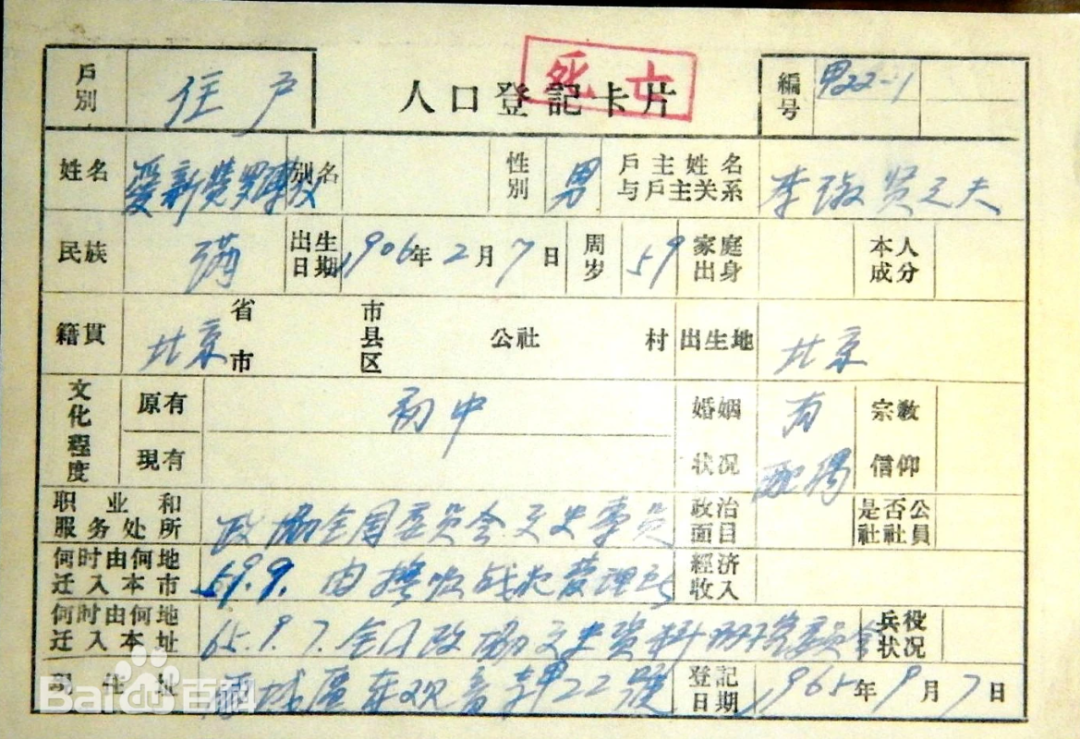 死亡
戶別 住户 人口登記卡片 編号 甲22-1
姓名 爱新觉罗溥仪 别名 性别 男 戶主姓名与戶主关系 李淑贤之夫
民族 满 出生日期 1906年2月7日 周岁 59 家庭出身 本人成分
籍貫 北京 省市 市县区 公社 村 出生地 北京
文化程度 原有 初中 婚姻状况 有配偶 宗教信仰
現有
职业和服务处所 政協全国委員会文史専員 政治面目 是否公社社員
何时由何地迁入本市 59.9. 由撫順战犯管理所 經济收入
何时由何地迁入本址 65.9.7. 全国政協文史资料研究委員会 兵役状况
現住址 西城區东观音寺甲22號 登記日期 1965年9月7日
Baidu百科